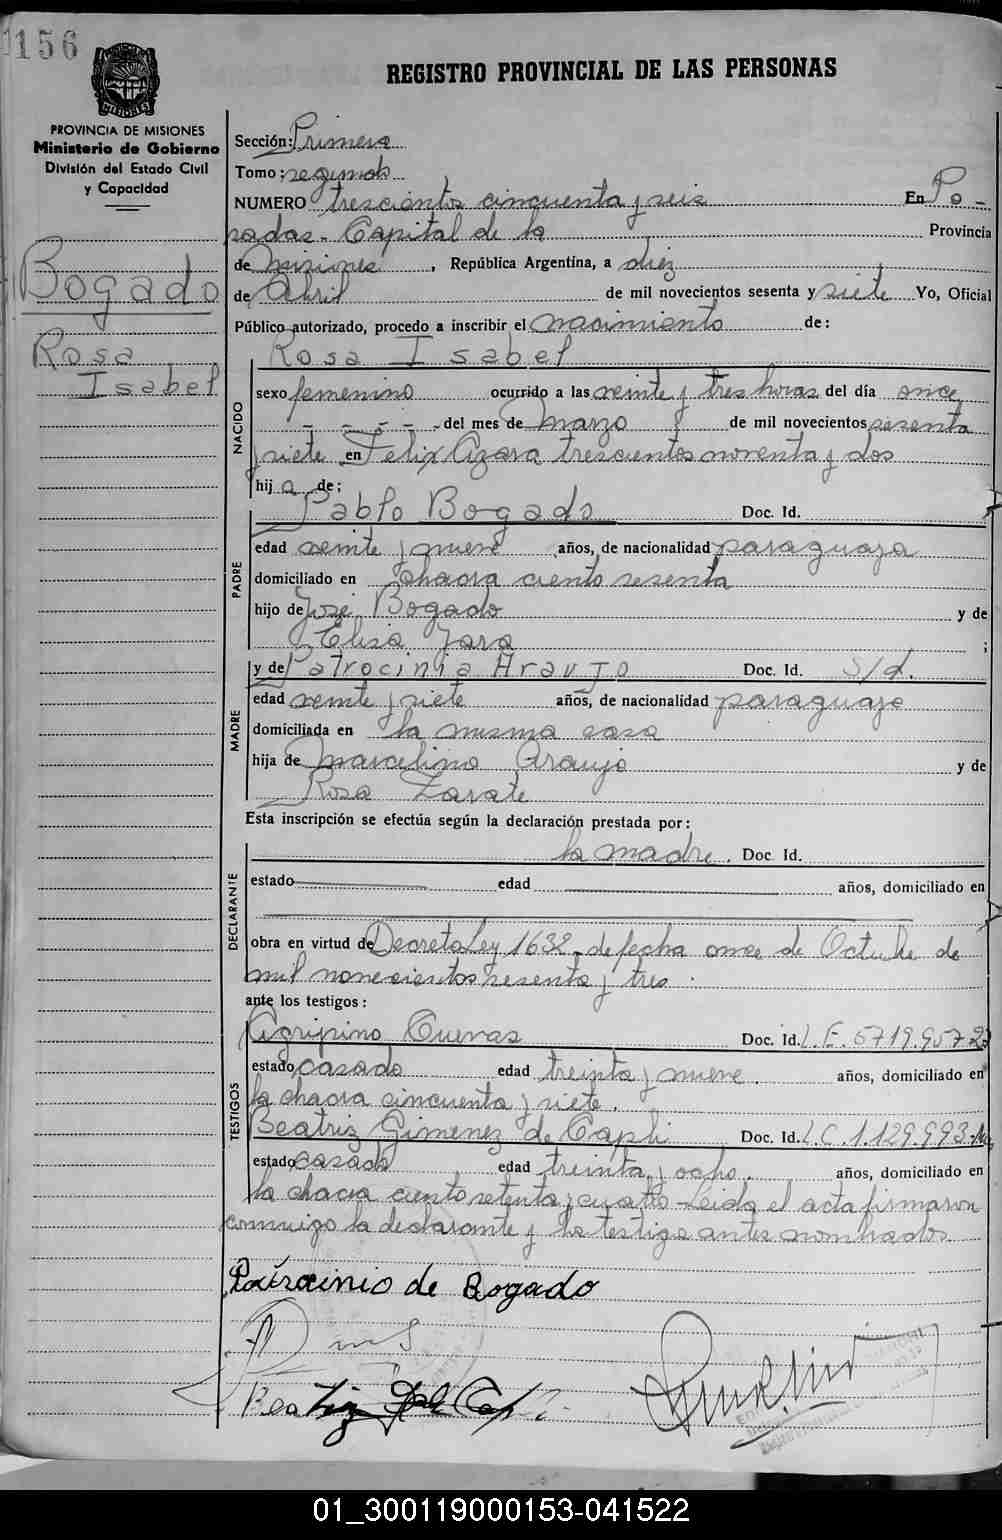 1156
REGISTRO PROVINCIAL DE LAS PERSONAS
PROVINCIA DE MISIONES
Ministerio de Gobierno
División del Estado Civil
y Capacidad
Bogado
Rosa
Isabel
Sección: Primera
Tomo: segundo
NUMERO trescientos cincuenta y seis En Po-
sadas - Capital de la Provincia
de Misiones, República Argentina, a diez
de Abril de mil novecientos sesenta y siete Yo, Oficial
Público autorizado, procedo a inscribir el nacimiento de:
Rosa Isabel
NACIDO
sexo femenino ocurrido a las veinte y tres horas del día once
- - - - - del mes de Marzo de mil novecientos sesenta
y siete en Felix Azara trescientos noventa y dos
hij a de:
Pablo Bogado Doc. Id.
PADRE
edad veinte y nueve años, de nacionalidad paraguaya
domiciliado en chacra ciento sesenta
hijo de José Bogado y de
Elisa Jara ;
y de Patrocinia Araujo Doc. Id. S/d.
MADRE
edad veinte y siete años, de nacionalidad paraguaya
domiciliada en la misma casa
hija de Marcelino Araujo y de
Rosa Zarate
Esta inscripción se efectúa según la declaración prestada por:
la madre. Doc. Id.
DECLARANTE
estado edad años, domiciliado en
obra en virtud de Decreto Ley 1632 - de fecha once de Octubre de
mil novecientos sesenta y tres.
ante los testigos:
TESTIGOS
Agripino Cuevas Doc. Id. L.E. 5719.957
estado casado edad treinta y nueve. años, domiciliado en
la chacra cincuenta y siete.
Beatriz Gimenez de Capli Doc. Id. L.C. 1.129.993
estado casada edad treinta y ocho. años, domiciliado en
la chacra ciento setenta y cuatro - Leida el acta firmaron
conmigo la declarante y los testigos antes nombrados
Patrocinio de Bogado
Beatriz
01_300119000153-041522